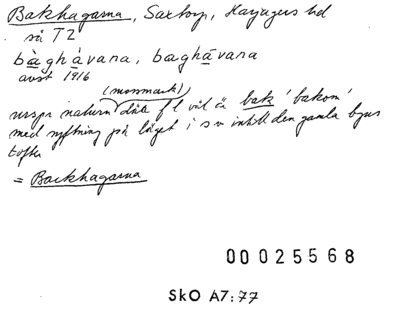 Bakhagarna, Saxtorp, Harjagers hd
så T2
bàghávana, baghāvana
avst 1916
(monmark)
urspr naturn där f l vil är bak 'bakom'
med syftning på läget i s v intill den gamla byns
tofter
= Backhagarna
00025568
SkO A7:77